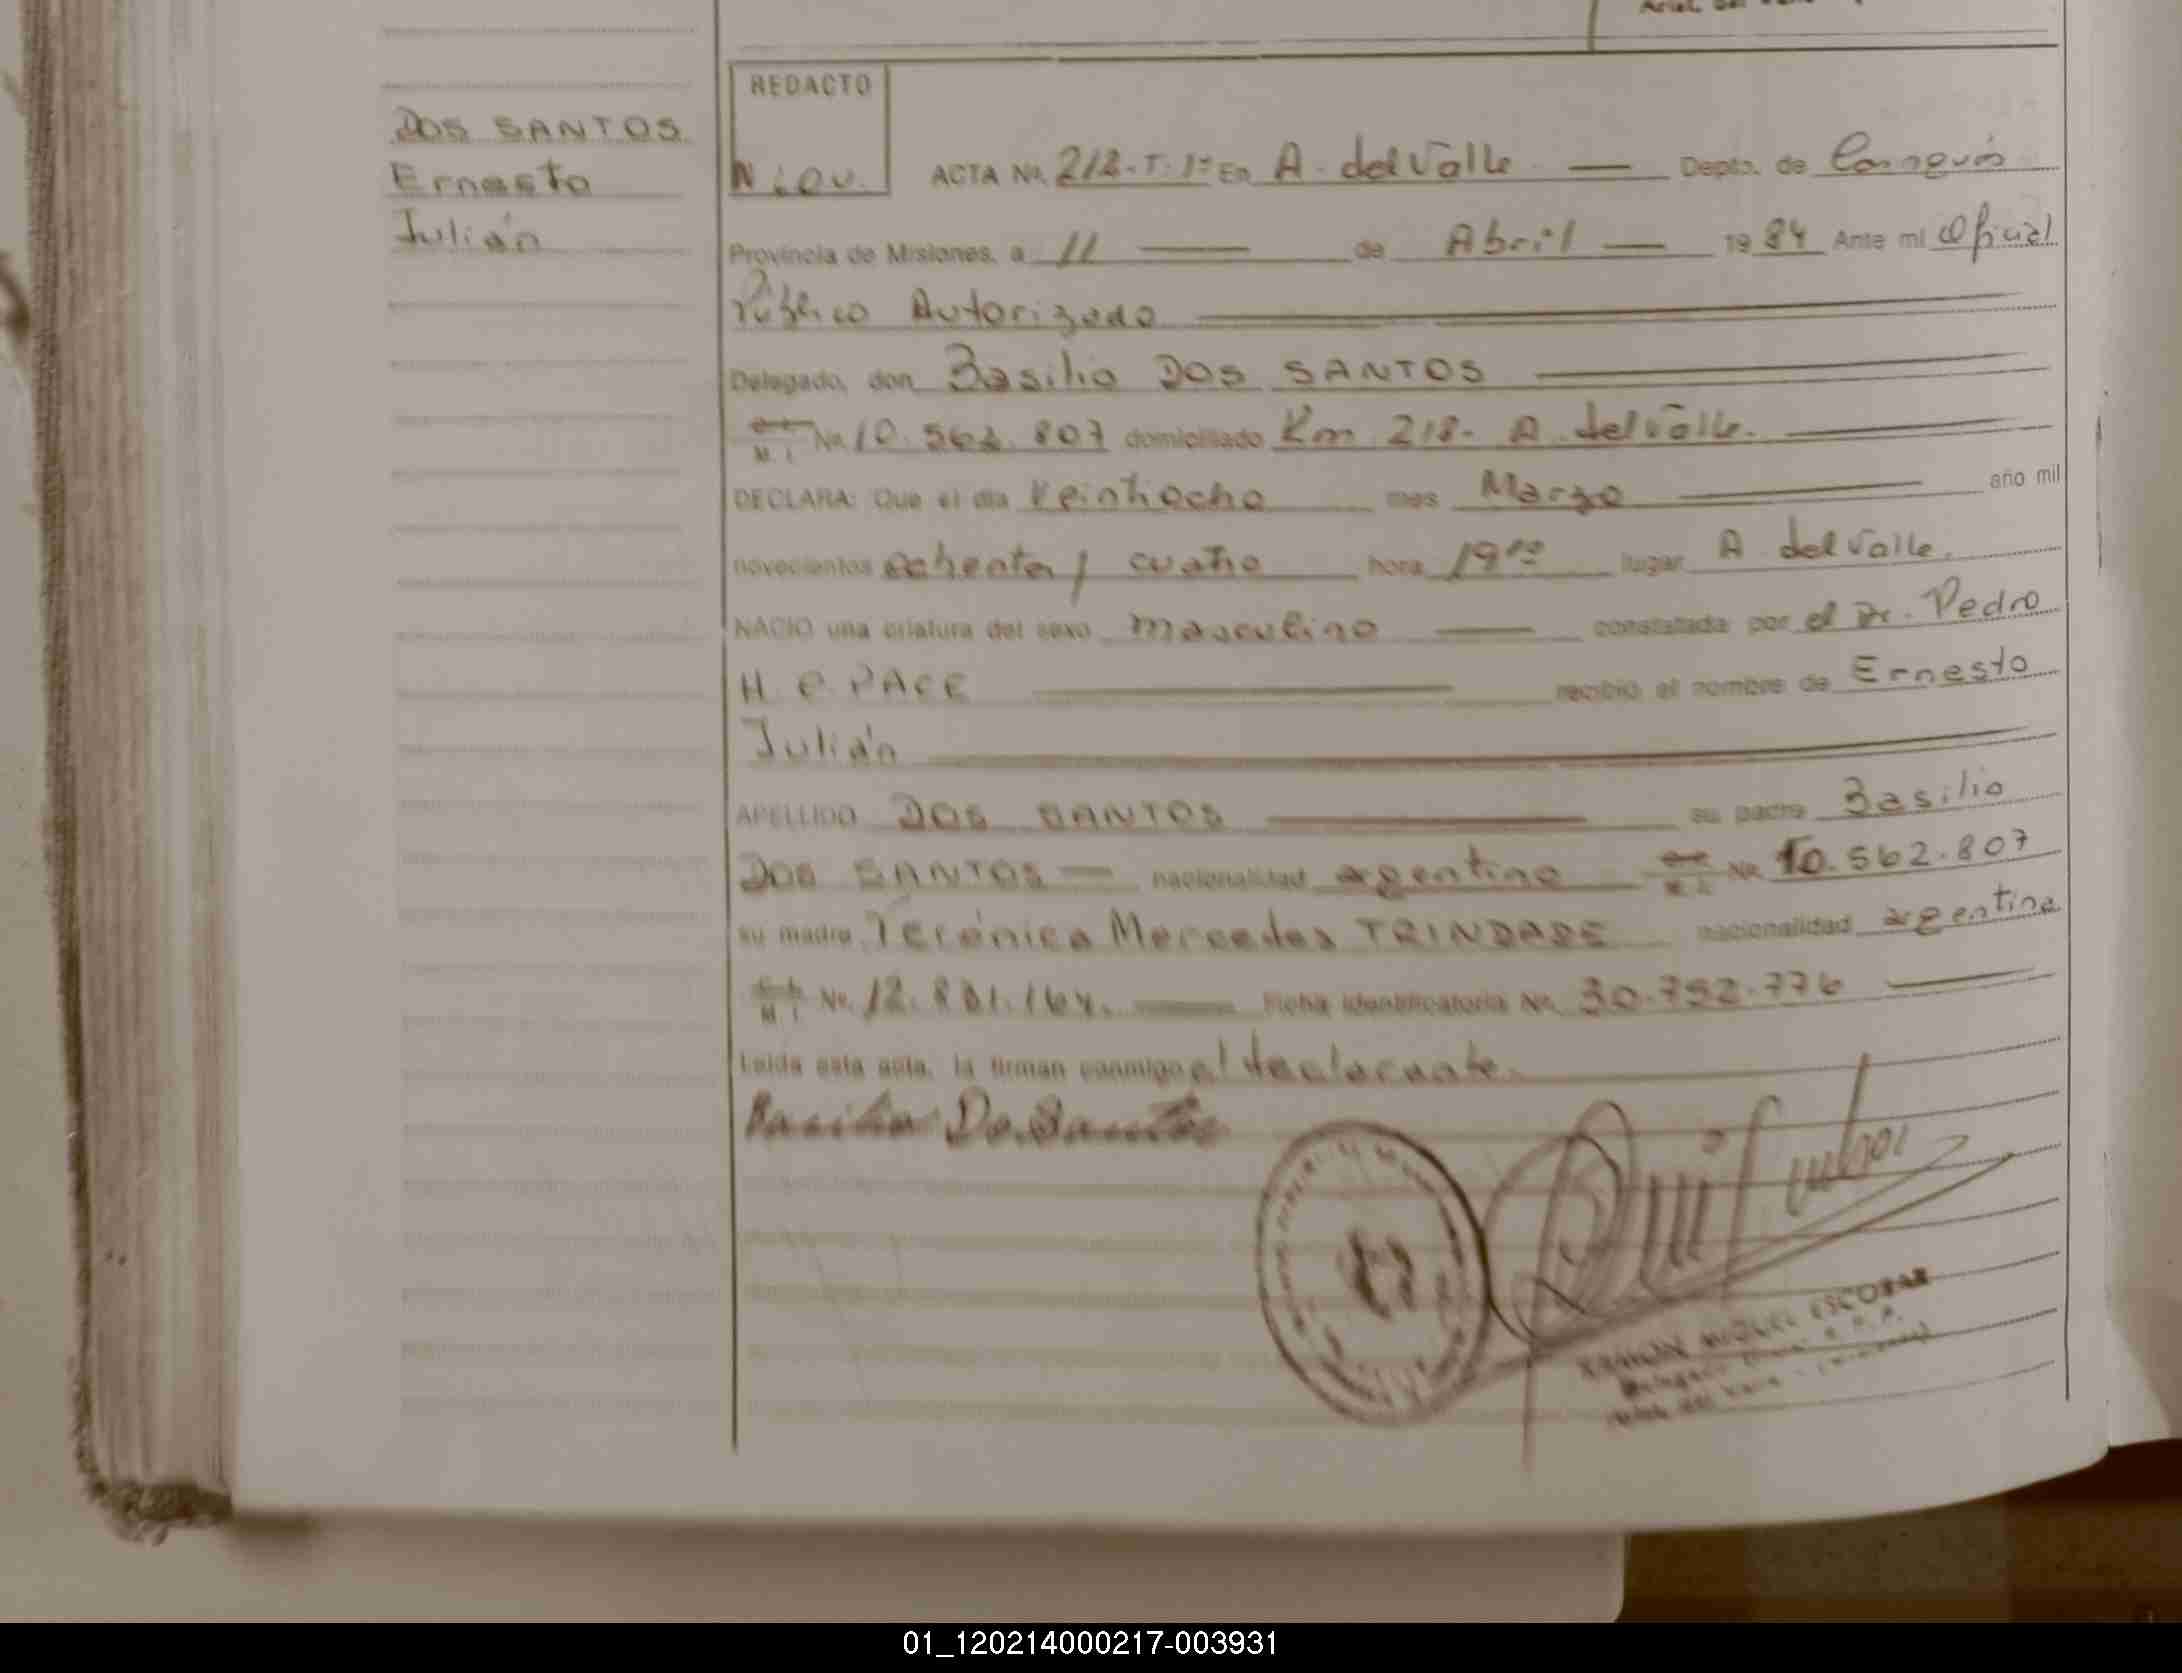 DOS SANTOS
Ernesto
Julián
REDACTO
ACTA No. 212-T-1º En A. del Valle — Depto. de Cainguás
Provincia de Misiones, a 11 — de Abril — 1984 Ante mí Oficial
Público Autorizado
Delegado, don Basilio DOS SANTOS
M. I. No. 10.562.807 domiciliado Km 218- A. del Valle.
DECLARA: Que el día Veintiocho mes Marzo año mil
novecientos ochenta y cuatro hora 19 lugar A del Valle.
NACIO una criatura del sexo masculino — constatada por el Dr. Pedro
H. C. PACE recibió el nombre de Ernesto
Julián
APELLIDO DOS SANTOS su padre Basilio
DOS SANTOS — nacionalidad argentino M. I. No. 10.562.807
su madre Mercedes TRINDADE nacionalidad argentina
M. I. No. 12.801.164. — Ficha identificatoria No. 30.792.776
Leída esta acta, la firman conmigo el declarante.
Basilio Do Santos
RAMON MIGUEL ESCOBAR
01_120214000217-003931